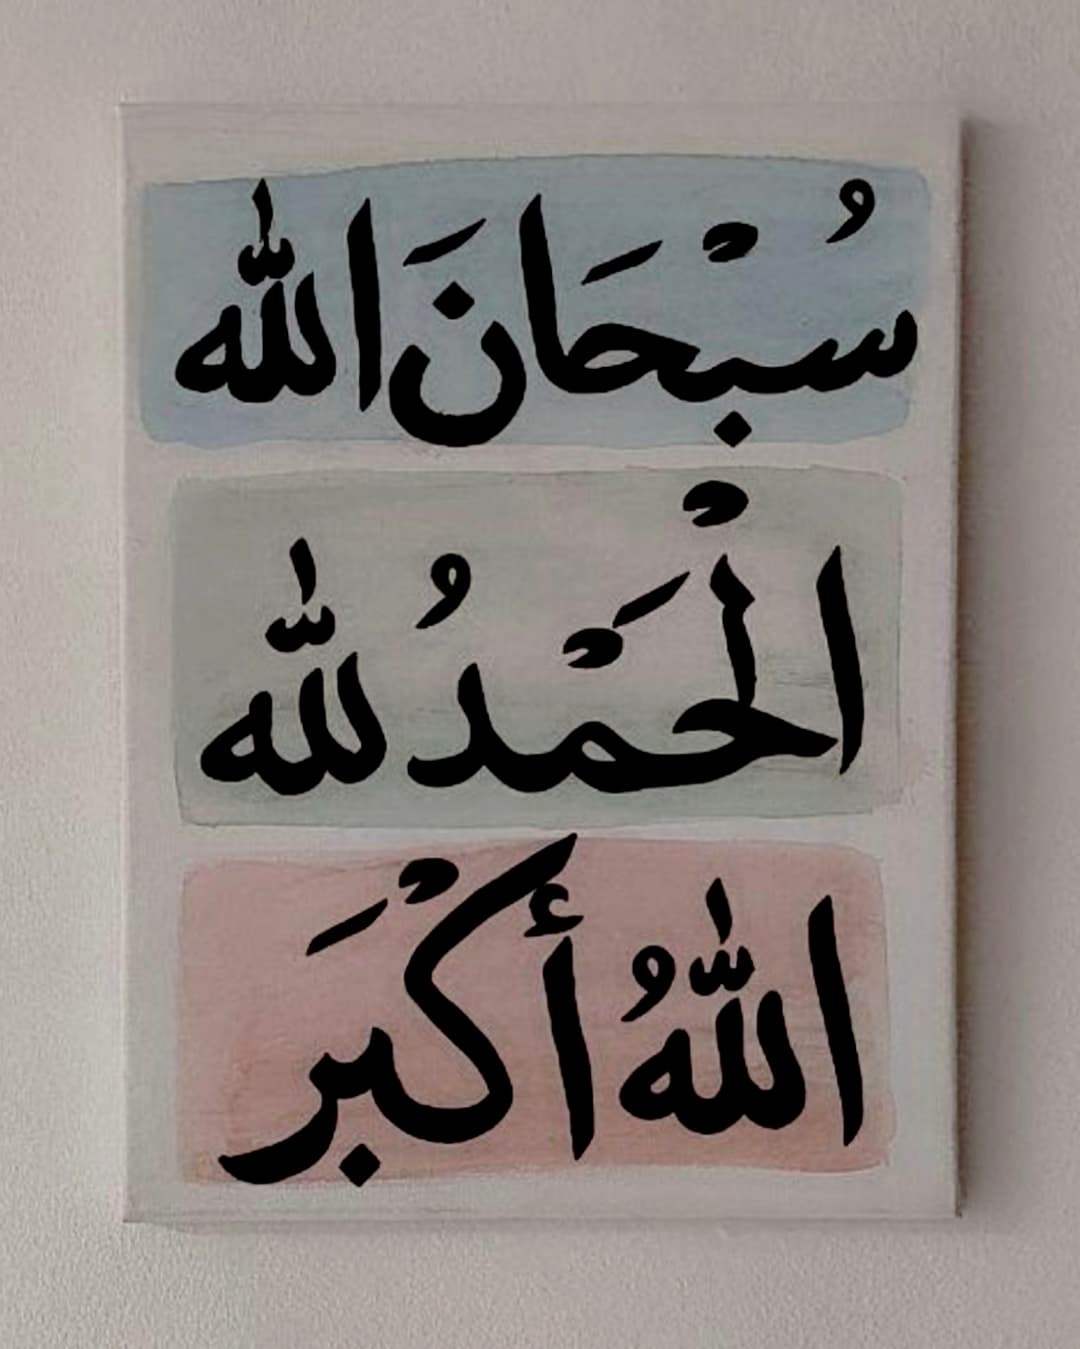 سُبْحَانَ اللّٰه
الْحَمْدُ لِلّٰه
اللّٰهُ أَكْبَر